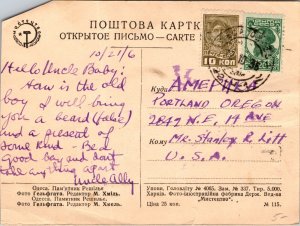 ПОШТОВА КАРТК
ОТКРЫТОЕ ПИСЬМО — CARTE
10/21/6
10 КОП
Hello Uncle Baby:
How is the old
boy I will bring
you a beard (false)
and a present of
some kind - Be a
good boy and don't
take anything apart
Uncle Ally
Куди
Куда
PORTLAND OREGON
2842 N.E. 19 AVE
Кому
Mr. Stanley R. Litt
U.S.A.
Одеса. Пам'ятник Рішельє.
Фото Гельфгата. Редактор М. Хміль.
Одесса. Памятник Ришелье.
Фото Гельфгата. Редактор М. Хмель.
Уповн. Головліту № 4065. Зам. № 337. Тир. 5.000.
Харків. Фото-ілюстраційна фабрика Держ. Вид-ва
„Мистецтво".
Ціна 25 коп.
№ 115.